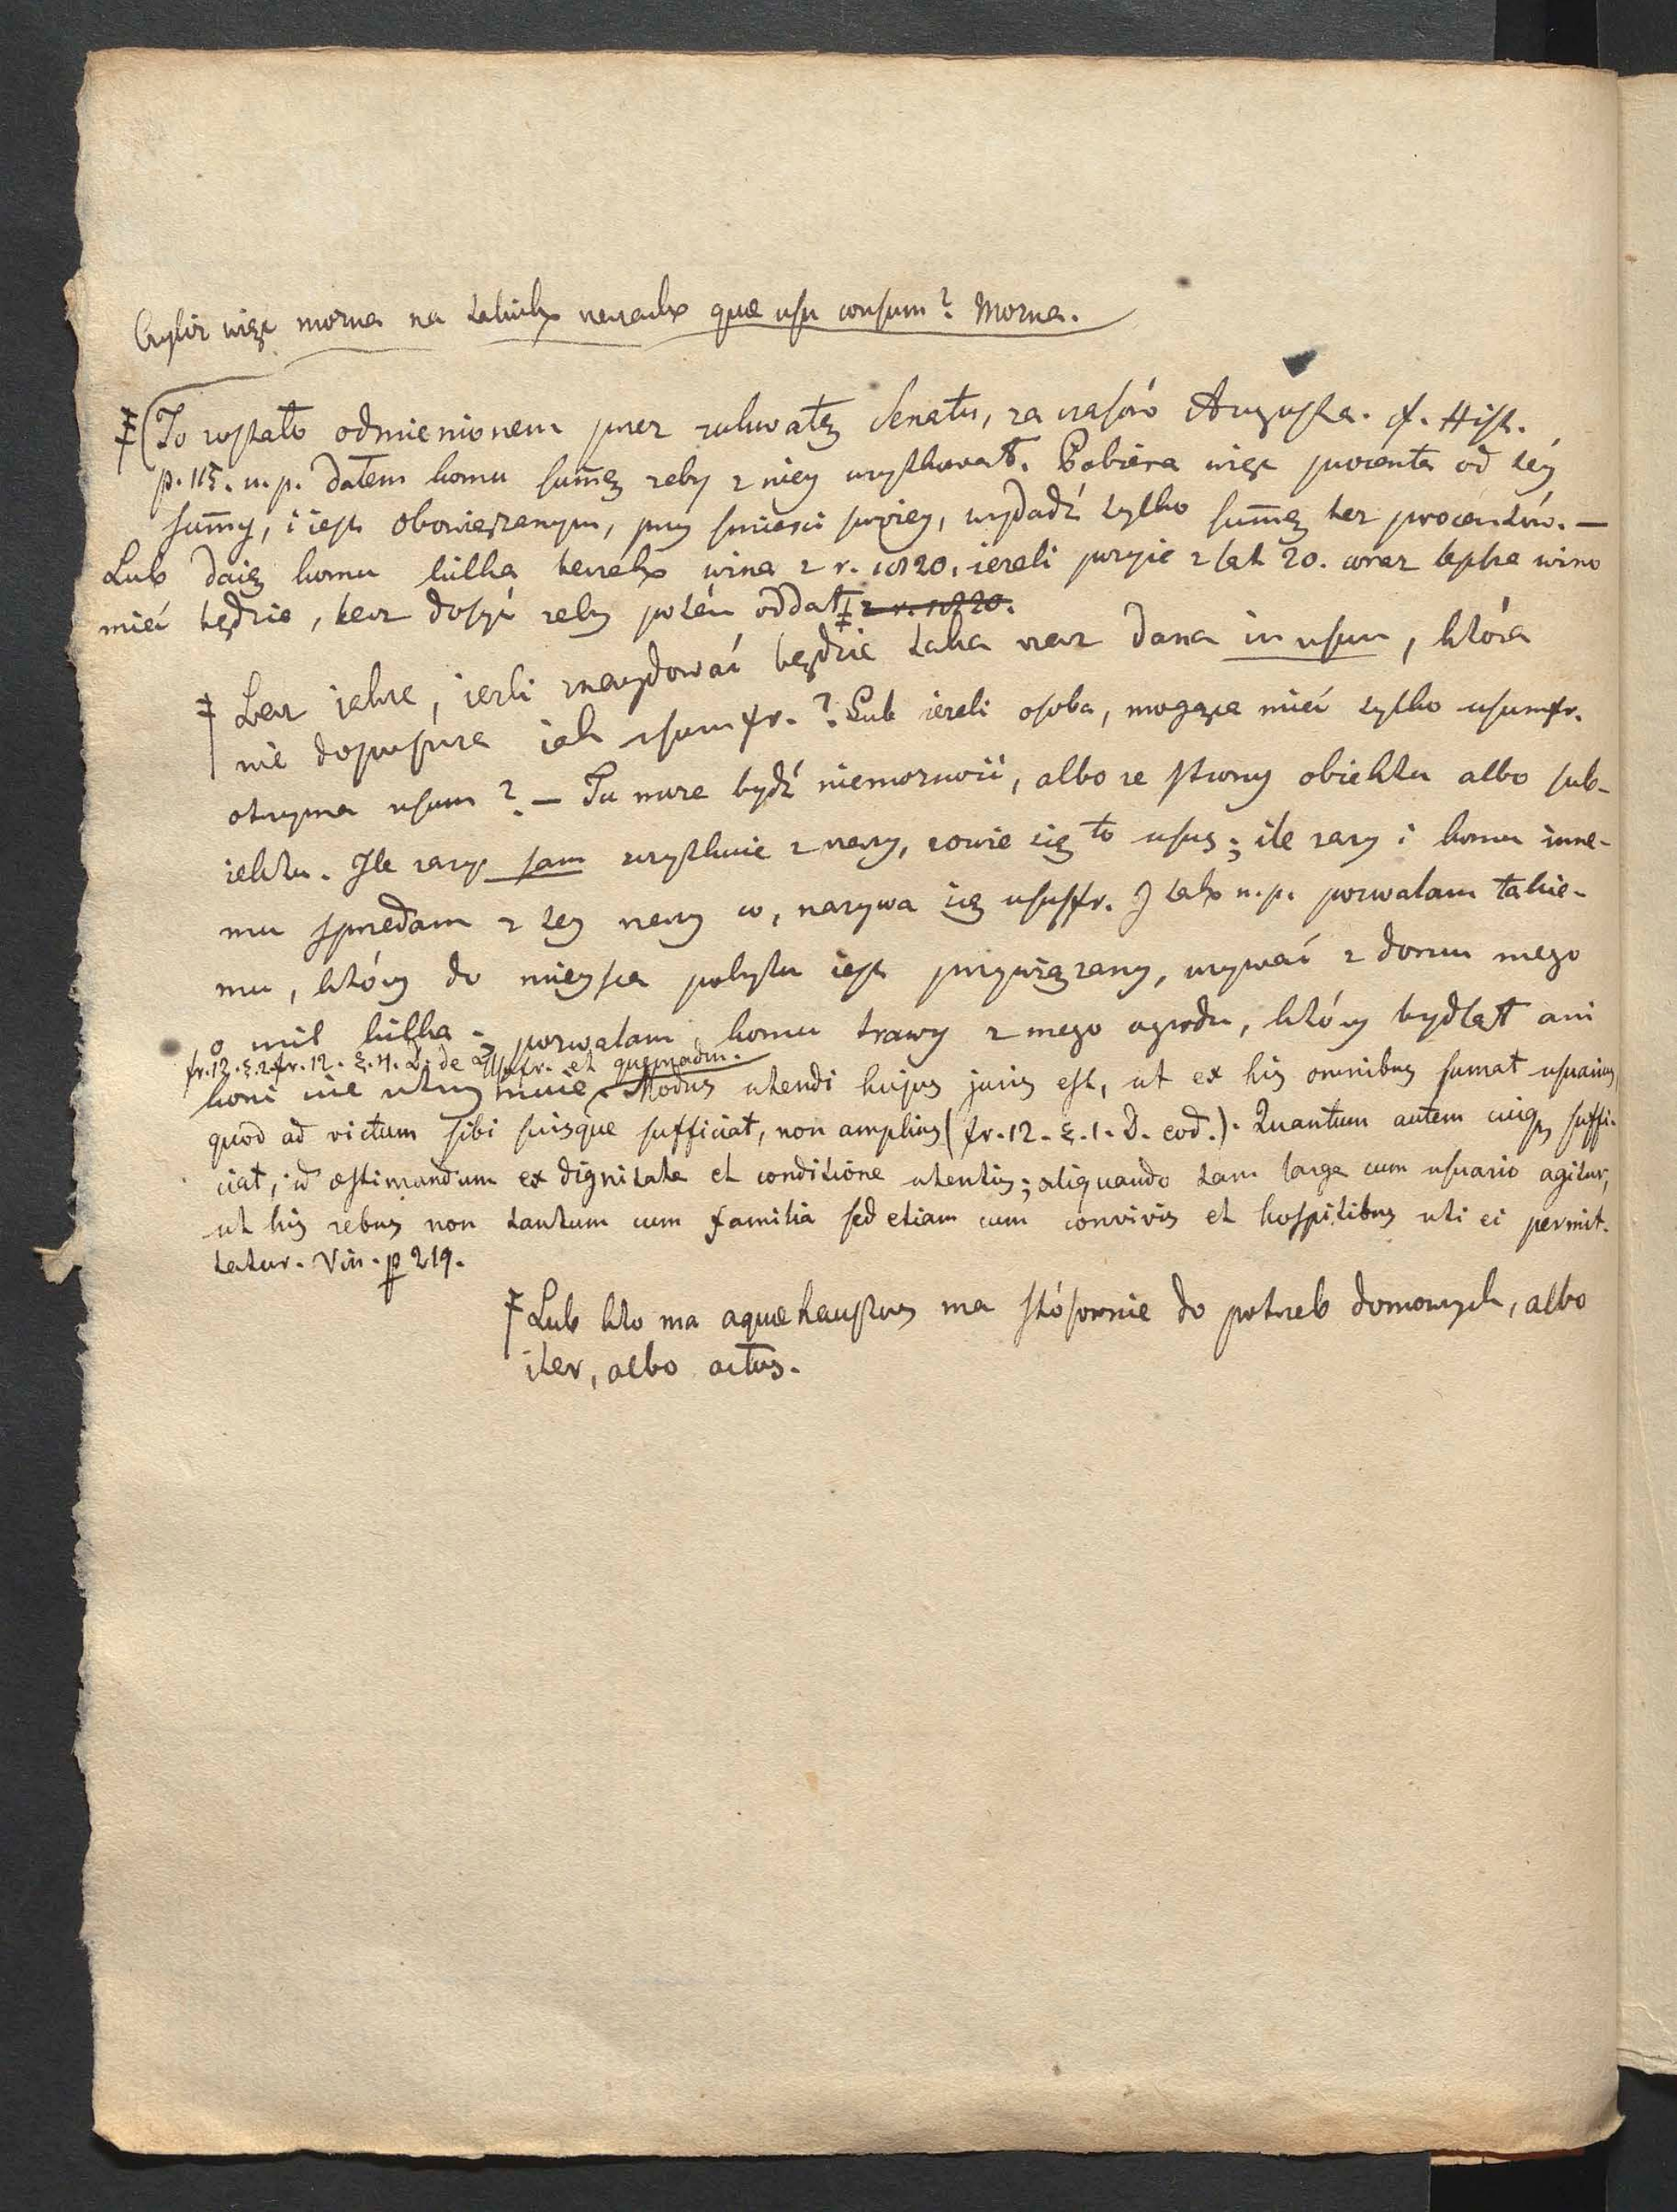 Czyliż więc można na takich rzeczach quæ usu consum? Można.
(To zostało odmienionem przez uchwałę Senatu, za czasów Augusta. cf. Hist.
p. 115. n.p. dałem komu summę żeby z niey uzytkował. Pobiera więc procenta od tey
summy, i iest obowiązanym, przy śmierci swoiey, wydadź tylko summę bez procentów. –
Lub daię komu kilka beczek wina z r. 1820. ieżeli pożyie z lat 20. coraz lepsze wino
mieć będzie, lecz dosyć żeby potém oddał z r. 1820.
Lecz iakże, ieżli znaydować będzie taka rzecz dana in usum, która
nie dopuszcza iak usumfr.? Lub ieżeli osoba, mogąca mieć tylko usumfr.
otrzyma usum? – Tu może bydź niemożność, albo ze strony obiektu albo sub-
iektu. Ile razy sam uzytkuie z rzeczy, zowie się to usus; ile razy i komu inne-
mu sprzedam z tey rzeczy co, nazywa się ususfr. I tak n.p. pozwalam takie-
mu, który do mieysca pobytu iest przywiązany, używać z domu mego
o mil kilka; pozwalam komu trawy z mego ogrodu, który bydląt ani
fr. 12. §. 2. fr. 12. §. 4. D. de Usufr. et quemadm.
koni nie utrzymuie. Modus utendi hujus juris est, ut ex his omnibus sumat usuarius,
quod ad victum sibi suisque sufficiat, non amplius (fr. 12. §. 1. D. eod.). Quantum autem cuiq3 suffi-
ciat, id æstimandum ex dignitate et conditione utentis; aliquando tam large cum usuario agitur,
ut his rebus non tantum cum familia sed etiam cum convivis et hospitibus uti ei permit-
tatur. Vin. p 219.
Lub kto ma aquæhaustus ma stósownie do potrzeb domowych, albo
iter, albo actus.